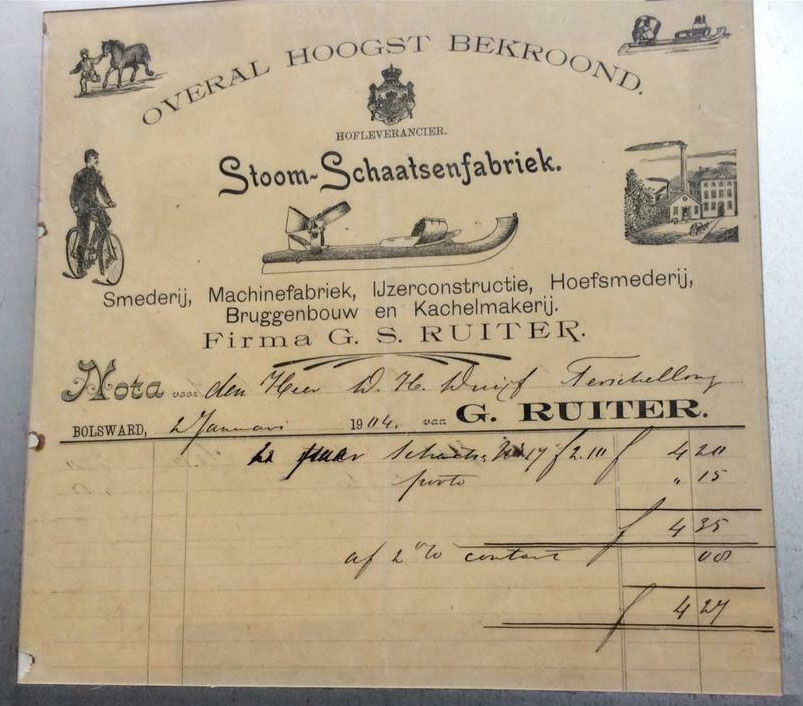 OVERAL HOOGST BEKROOND.
HOFLEVERANCIER.
Stoom-Schaatsenfabriek.
Smederij, Machinefabriek, IJzerconstructie, Hoefsmederij,
Bruggenbouw en Kachelmakerij.
Firma G. S. RUITER.
Nota voor den Heer D. H. Duijf Terschelling
BOLSWARD, 2 Januari 1904. van G. RUITER.
2 paar Schaats. No 17 f 2.10 f 4 20
porto " 15
f 4 35
af 2 % contant 08
f 4 27